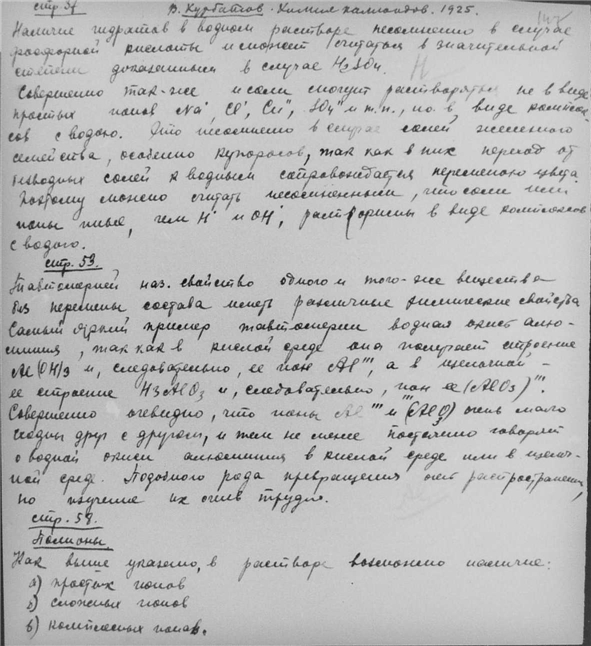 стр. 37 В. Курбатов - Химия коллоидов. 1925.
Наличие гидратов в водном растворе несомненно в случае
фосфорной кислоты и может считаться в значительной
степени доказанным в случае H2SO4.
Совершенно так-же и соли могут растворяться не в виде
простых ионов Na˙, Cl', Cu¨, SO4" и т.п., но в виде комплек-
сов с водою. Это несомненно в случае солей железного
семейства, особенно купоросов, так как в них переход от
безводных солей к водным сопровождается переменою цвета
Поэтому можно считать несомненным, что соли или
ионы иные, чем H˙ и OH', растворимы в виде комплексов
с водою.
стр. 53.
Тавтомерией наз. свойство одного и того-же вещества
без перемены состава иметь различные химические свойства
Самый яркий пример тавтомерии водная окись алю-
миния, так как в кислой среде она получает строение
Al(OH)3 и, следовательно, ее ион Al''', а в щелочной -
ее строение H3AlO3 и, следовательно, ион ее (AlO3)'''.
Совершенно очевидно, что ионы Al''' и (AlO3)''' очень мало
сходны друг с другом, и тем не менее постоянно говорят
о водной окиси алюминия в кислой среде или в щелоч-
ной среде. Подобного рода превращения очень распространены,
но изучение их очень трудно.
стр. 58.
Полионы.
Как выше указано, в растворе возможно наличие:
а) простых ионов
б) сложных ионов
в) комплексных ионов.